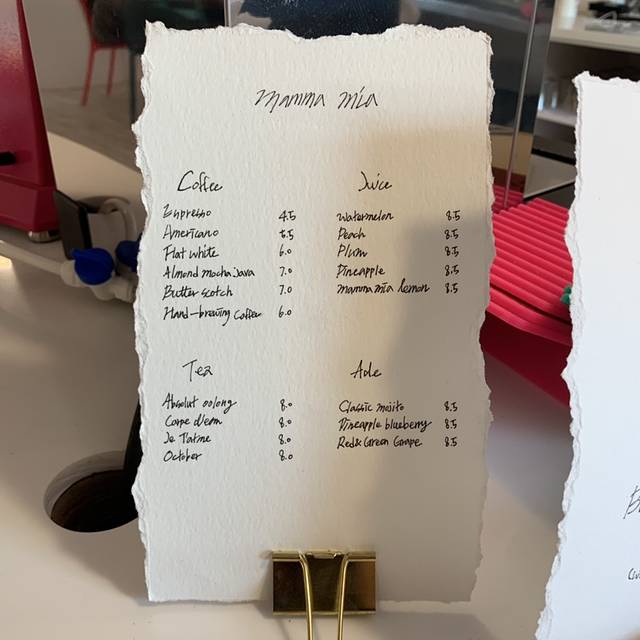 mamma mia
Coffee
Espresso 4.5
Americano 5.5
Flat white 6.0
Almond mocha java 7.0
Butter scotch 7.0
Hand-brewing coffee 6.0
Juice
Watermelon 8.5
Peach 8.5
Plum 8.5
Pineapple 8.5
mamma mia lemon 8.5
Tea
Absolut oolong 8.0
Carpe diem 8.0
Je T'aime 8.0
October 8.0
Ade
Classic mojito 8.5
Pineapple blueberry 8.5
Red& Green Grape 8.5